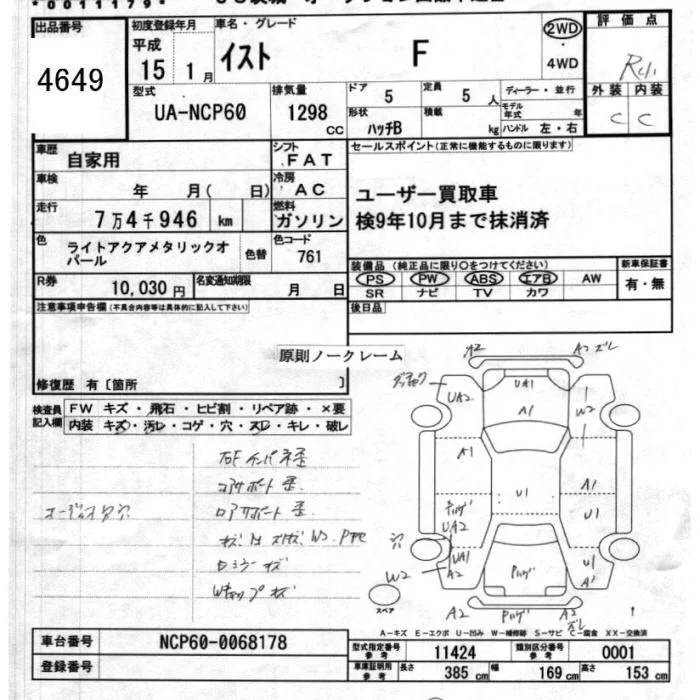 *0011179*
出品番号 初度登録年月 車名・グレード 2WD 評価点
4649 平成 15 1月 イスト F 4WD
型式 排気量 ドア 5 定員 5人 ディーラー・並行 外装 内装
UA-NCP60 1298 CC 形状 ハッチB 積載 kg モデル年式 年 C C
ハンドル 左・右
車歴 自家用 シフト FAT セールスポイント(正常に機能するものに限ります)
車検 年 月( 日) 冷房 AC ユーザー買取車
走行 7万4千946 km 燃料 ガソリン 検9年10月まで抹消済
色 ライトアクアメタリックオパール 色替 色コード 761
装備品(純正品に限り○をつけてください) 新車保証書
PS PW ABS エアB AW 有・無
SR ナビ TV カワ
R券 10,030円 名変通知期限 月 日
注意事項申告欄(不具合内容等は具体的に記入して下さい) 後日品
原則ノークレーム
修復歴 有〔箇所 〕
検査員記入欄 FW キズ・飛石・ヒビ割・リペア跡・×要
内装 キズ・汚レ・コゲ・穴・スレ・キレ・破レ
A2 A2ズレ
UA2 UA1 W2
A1
A1 A1
U1 U1
UA2
UA1 A2 U1 A1
W2
A2 A2
スペア
A-キズ E-エクボ U-凹み W-補修跡 S-サビ C-腐食 XX-交換済
車台番号 NCP60-0068178 型式指定番号 参考 11424 類別区分番号 参考 0001
登録番号 車庫証明用 参考 長さ 385 cm 幅 169 cm 高さ 153 cm